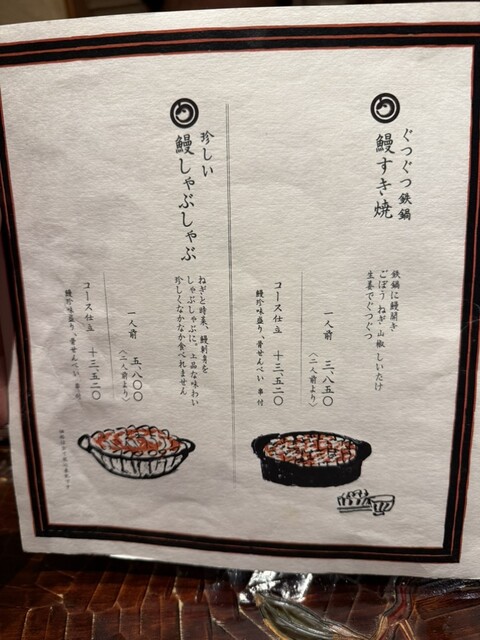 ぐつぐつ鉄鍋
鰻すき焼
鉄鍋に鰻開き、
ごぼう ねぎ 山椒 しいたけ
生姜でぐつぐつ
一人前 三、八五〇
〈二人前より〉
コース仕立 十三、五二〇
鰻珍味盛り、骨せんべい 串付
珍しい
鰻しゃぶしゃぶ
ねぎと時菜、鰻刺身を
しゃぶしゃぶに、上品な味わい
珍しくなかなか食べれません
一人前 五、八〇〇
〈二人前より〉
コース仕立 十三、五二〇
鰻珍味盛り、骨せんべい 串付